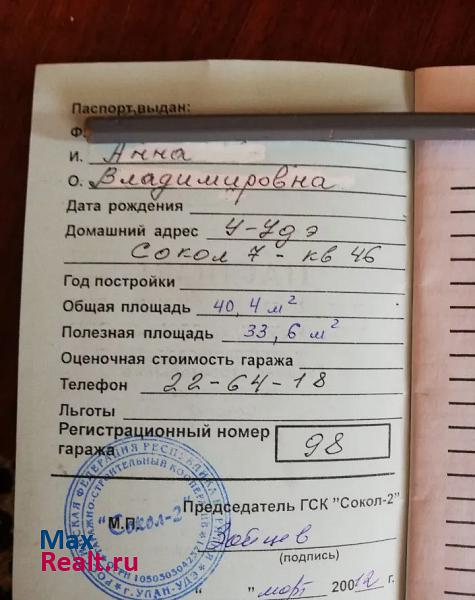 Паспорт выдан:
Ф.
И. Анна
О. Владимировна
Дата рождения
Домашний адрес У-Удэ
Сокол 7 - кв 46
Год постройки
Общая площадь 40,4 м²
Полезная площадь 33,6 м²
Оценочная стоимость гаража
Телефон 22-64-18
Льготы
Регистрационный номер
гаража 98
Председатель ГСК "Сокол-2"
М.П. "Сокол-2"
(подпись)
" " март 20012 г.
г. УЛАН-УДЭ
Max
Realt.ru